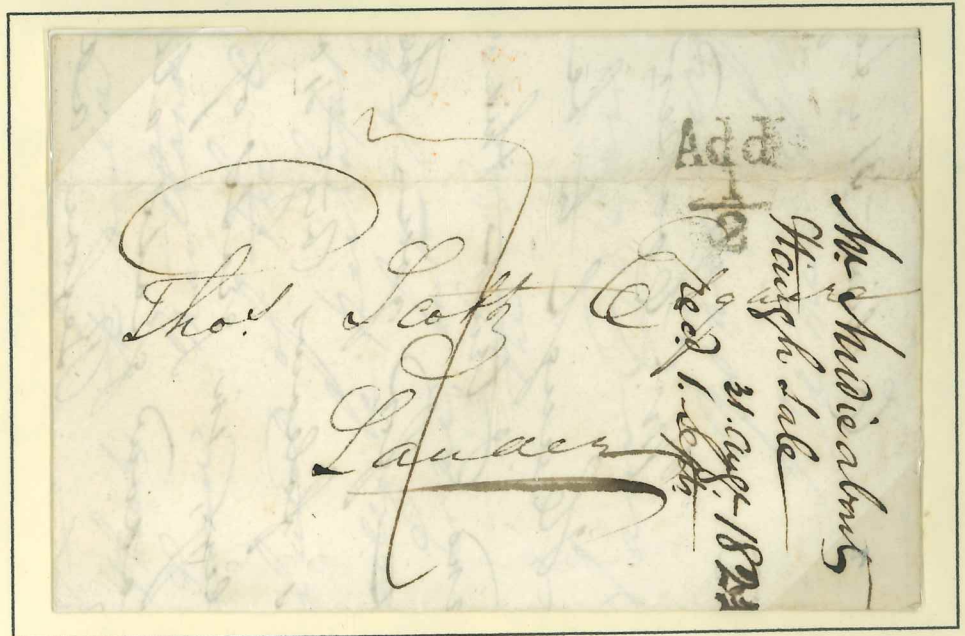 Add
1
2
Thos. Scott Esq
Lauder
7
Mr Mudie about
Haugh Sale
31. Augt. 182
Recd 1. Septr.